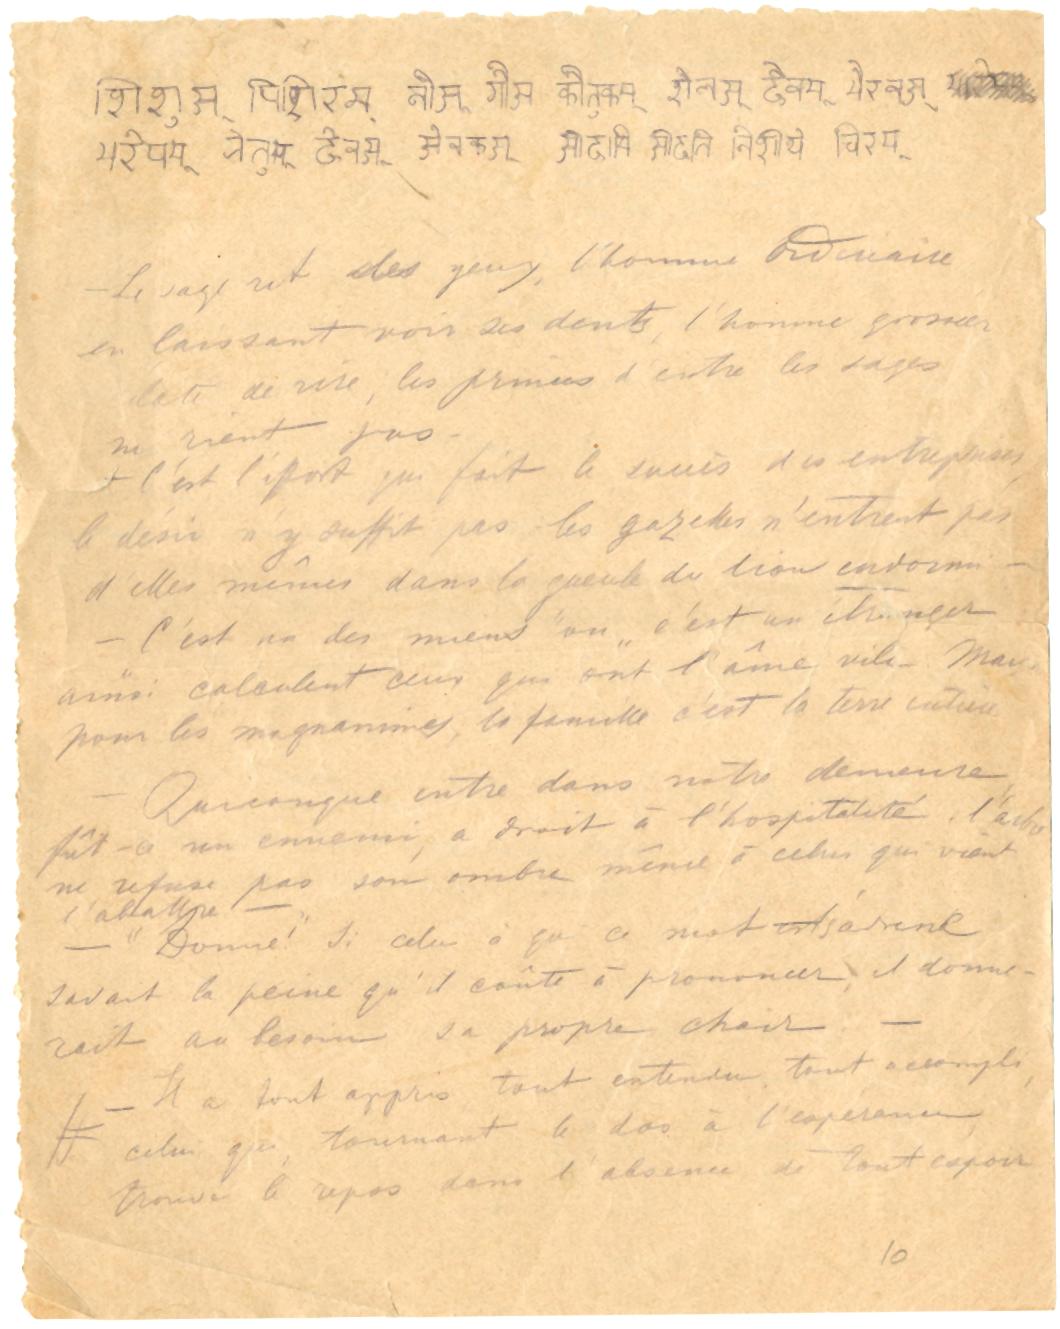 शिशुम् शिशिरम् नौम् गौम कौतुकम् शैलम् दैवम् भैरवम्
परेषम् नेतुम् देवम् सेवकम् सीदामि सीदति निशीथे चिरम्
– Le sage rit des yeux, l'homme ordinaire
en laissant voir ses dents, l'homme grossier
éclate de rire, les princes d'entre les sages
ne rient pas –
+ C'est l'effort qui fait le succès des entreprises,
le désir n'y suffit pas – les gazelles n'entrent pas
d'elles mêmes dans la gueule du lion endormi –
– "C'est un des miens" ou "c'est un étranger
ainsi calculent ceux qui ont l'âme vile – Mais
pour les magnanimes, la famille c'est la terre entière
– Quiconque entre dans notre demeure,
fût-ce un ennemi, a droit à l'hospitalité. l'arbre
ne refuse pas son ombre même à celui qui vient
l'abattre –
– "Donne!" Si celui à qui ce mot s'adresse
savait la peine qu'il coûte à prononcer, il donne-
rait au besoin sa propre chair. –
– Il a tout appris, tout entendu, tout accompli,
celui qui, tournant le dos à l'espérance,
trouve le repos dans l'absence de tout espoir
10